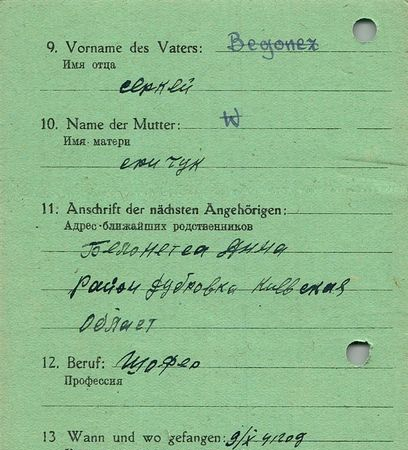 9. Vorname des Vaters: Begonez
Имя отца
сергей
10. Name der Mutter: W
Имя матери
11. Anschrift der nächsten Angehörigen:
Адрес ближайших родственников
Анна
Район Дубровка Киевская
Област
12. Beruf: Шофер
Профессия
13 Wann und wo gefangen: 9/X 41 год